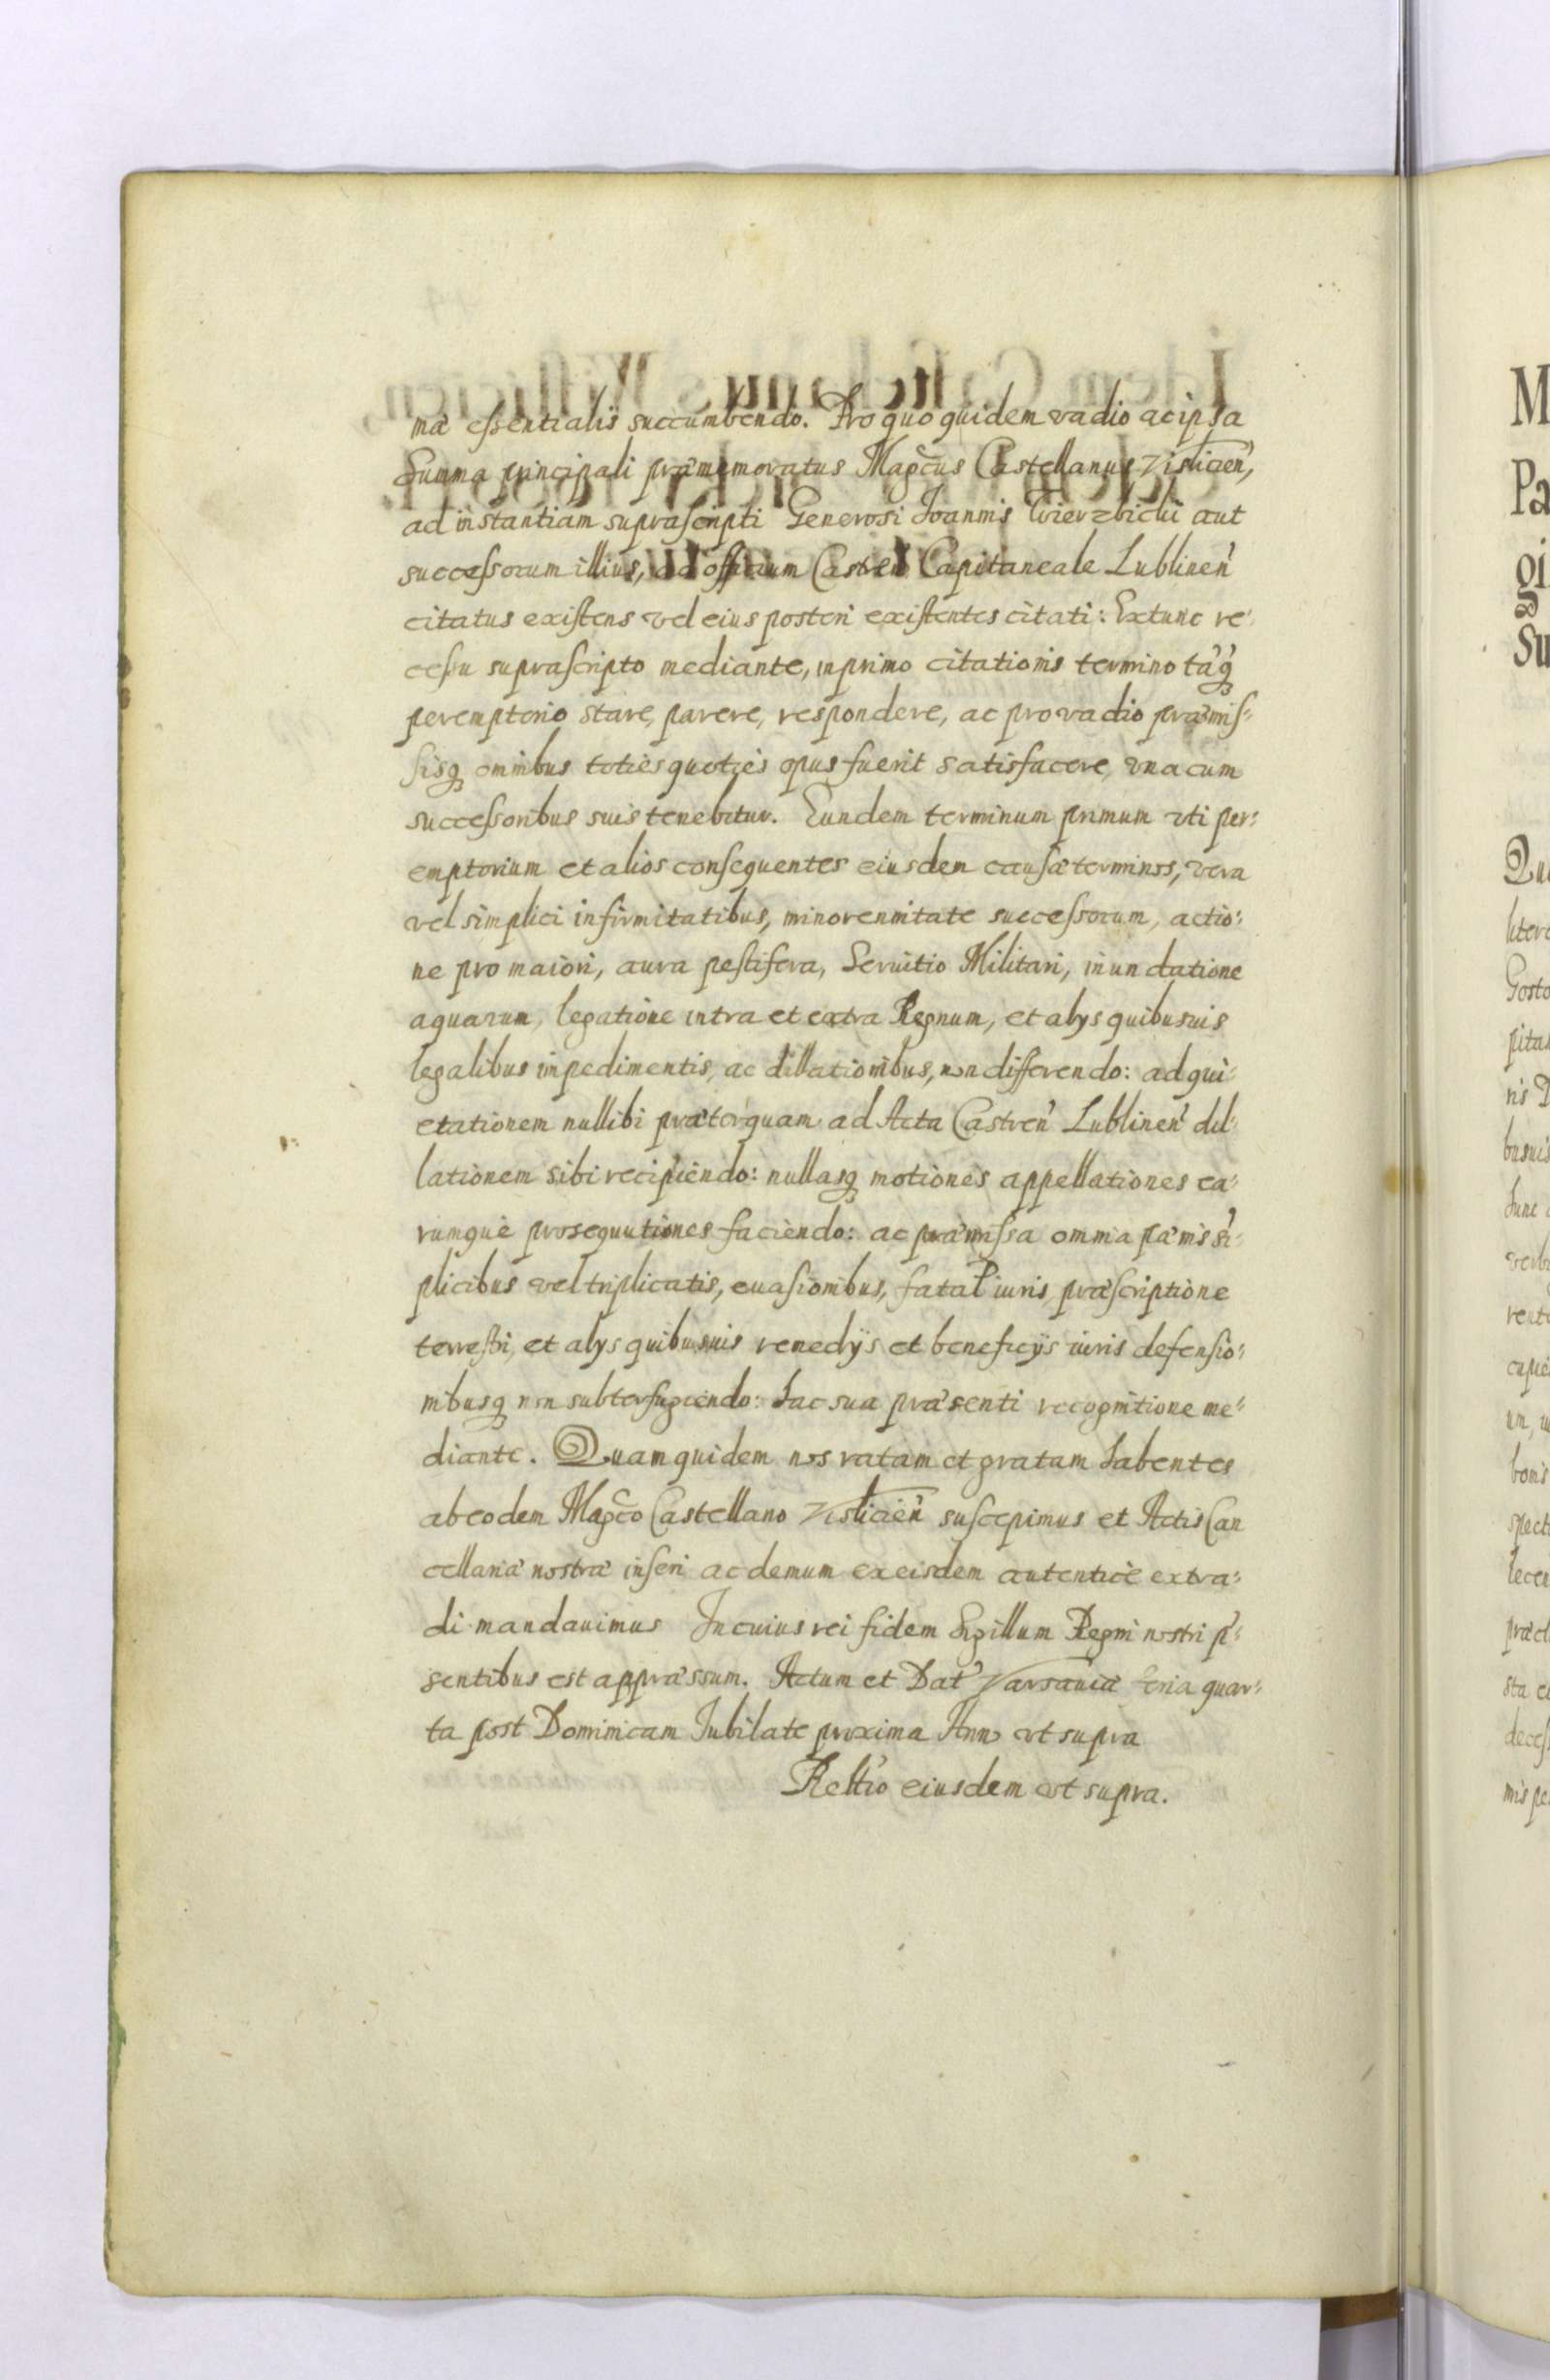 mæ essentialis succumbendo. Pro quo quidem vadio ac ipsa
Summa principali præmemoratus Magcus Castellanus Visliciен̃,
ad instantiam suprascripti Generosi Joannis Wierzbicki aut
successorum illius, ad officium Castren̄ Capitaneale Lublinen̄
citatus existens vel eius posteri existentes citati: Extunc re:
cessu suprascripto mediante, in primo citationis termino tanq̃
peremptorio stare, parere, respondere, ac pro vadio præmis:
sisq omnibus toties quoties opus fuerit satisfacere, vna cum
successoribus suis tenebitur. Eundem terminum primum vti per:
emptorium et alios consequentes eiusdem causæ terminos, vera
vel simplici infirmitatibus, minorennitate successorum, actio:
ne pro maiori, aura pestifera, Seruitio Militari, inundatione
aquarum, legatione intra et extra Regnum, et alys quibusuis
legalibus impedimentis, ac dillationibus, non differendo: ad qui:
etationem nullibi præterquam ad Acta Castren̄ Lublinen̄ dil:
lationem sibi recipiendo: nullasq motiones appellationes ea:
rumque prosequutiones faciendo: ac præmissa omnia pænis si:
plicibus vel triplicatis, euasionibus, fatal iuris præscriptione
terrestri, et alys quibusuis remedÿs et beneficÿs iuris defensio:
nibusq non subterfugiendo: hac sua præsenti recognitione me:
diante. Quam quidem nos ratam et gratam habentes
ab eodem Magco Castellano Vislicien̄ suscepimus et Actis Can
cellariæ nostræ inseri ac demum ex eisdem autentice extra:
di mandauimus In cuius rei fidem Sigillum Regni nostri p̄:
sentibus est appræssum. Actum et Dat Varsauiæ feria quar:
ta post Dominicam Iubilate proxima Anno vt supra
Reltio eiusdem vt supra.